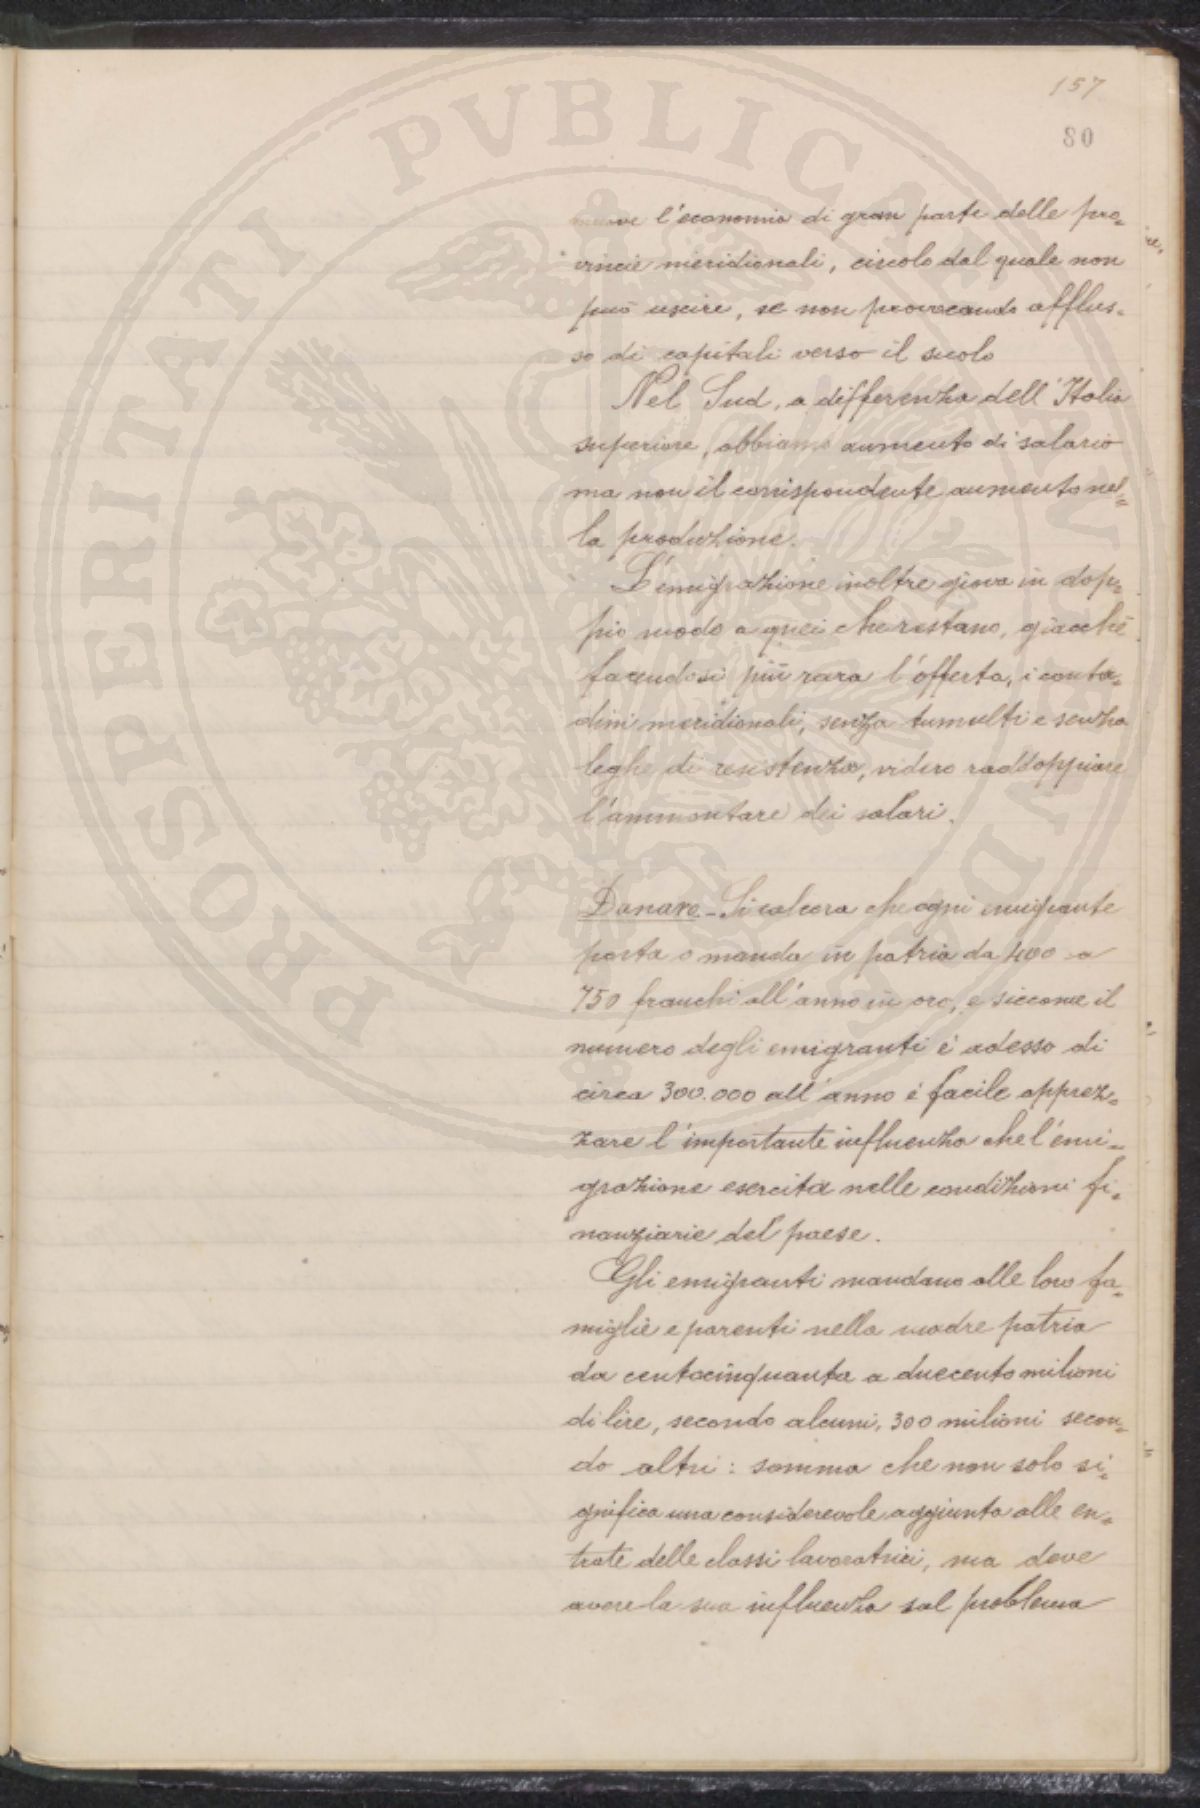 157
80
muove l'economia di gran parte delle pro=
vincie meridionali, circolo dal quale non
può uscire, se non provocando afflus=
so di capitali verso il suolo
Nel Sud, a differenza dell'Italia
superiore, abbiamo aumento di salario
ma non il corrispondente aumento nel=
la produzione.
L'emigrazione inoltre giova in dop=
pio modo a quei che restano, giacchè
facendosi più rara l'offerta, i conta=
dini meridionali, senza tumulti e senza
leghe di resistenza, videro raddoppiare
l'ammontare dei salari.
Danaro.- Si calcora che ogni emigrante
porta o manda in patria da 400 a
750 franchi all'anno in oro, e siccome il
numero degli emigranti è adesso di
circa 300.000 all'anno è facile apprez=
zare l'importante influenza che l'emi=
grazione esercita nelle condizioni fi=
nanziarie del paese.
Gli emigranti mandano alle loro fa=
miglie e parenti nella madre patria
da centocinquanta a duecento milioni
di lire, secondo alcuni, 300 milioni secon=
do altri: somma che non solo si=
gnifica una considerevole aggiunta alle en=
trate delle classi lavoratrici, ma deve
avere la sua influenza sul problema
PROSPERITATI PVBLICAE